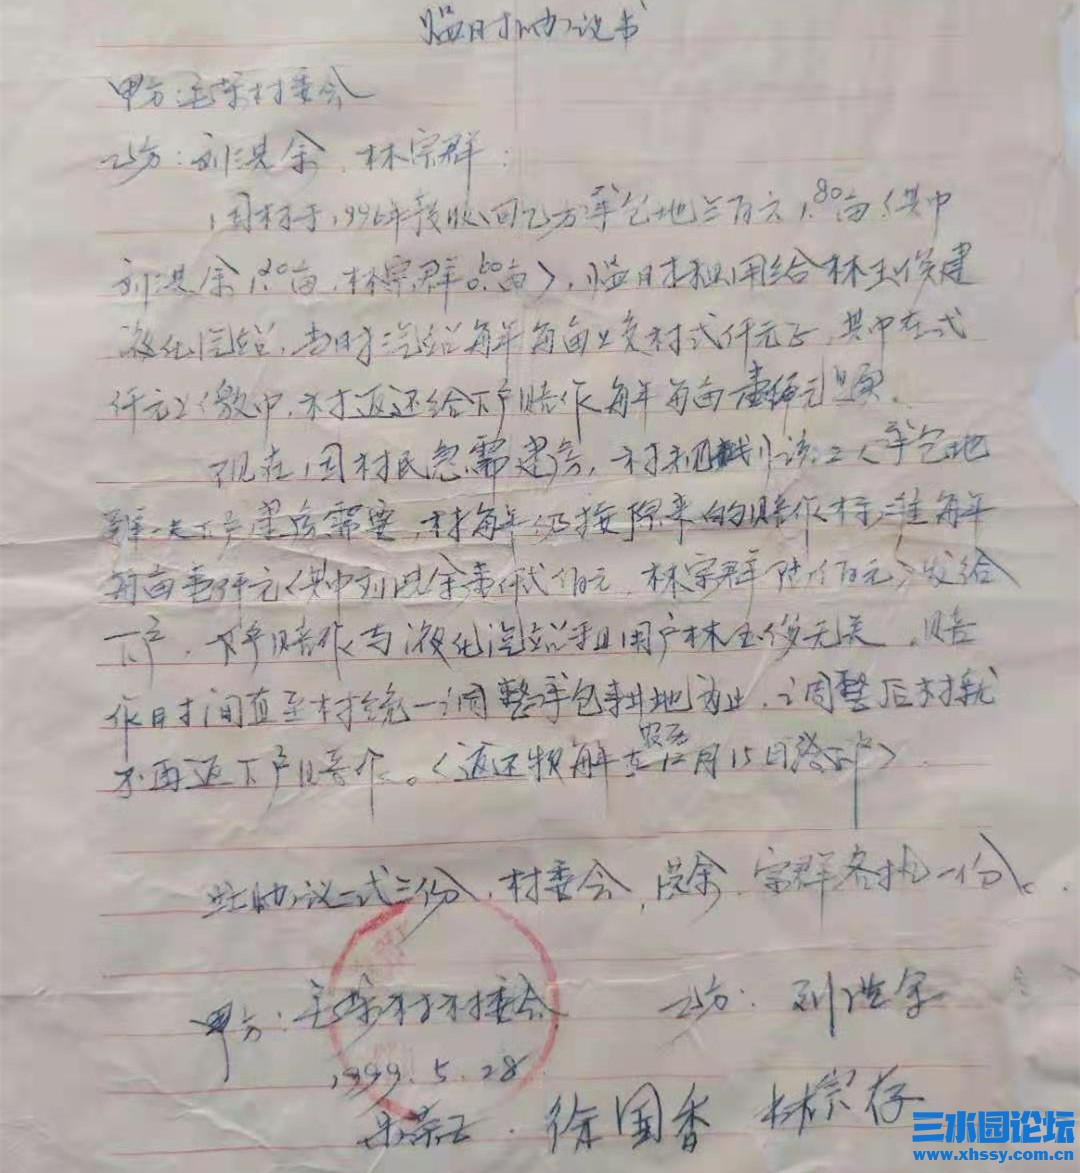 临时协议书
甲方:村委会
乙方:刘洪余、林宗群:
因村于1996年接收回乙方承包地三百六1.80亩(其中
刘洪余1.20亩,林宗群0.60亩),临时租用给林玉俊建
液化汽站,当时汽站每年每亩上交村弍仟元正,其中在弍
仟元上缴中,村返还给下户赔作每年每亩壹仟元
现在因村民急需建房,村规划该二人承包地
建房需要,村每年仍按原来的赔作标准每年
每亩壹仟元(其中刘洪余壹仟弍佰元,林宗群陆佰元)发给
下户,赔作与液化汽站租用户林玉俊无关,赔
作时间直至村统一调整承包耕地为止,调整后村就
不再返下户赔作。(返还款每年12月15日给下户)
此协议一式三份,村委会,洪余,宗群各执一份。
甲方:村村委会 乙方:刘洪余
1999.5.28
徐国香 林宗存
三水园论坛
www.xhssy.com.cn